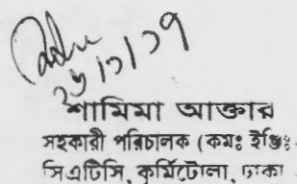 শামিমা আক্তার
সহকারী পরিচালক (কমঃ ইঞ্জিঃ
সিএটিসি, কুর্মিটোলা, ঢাকা